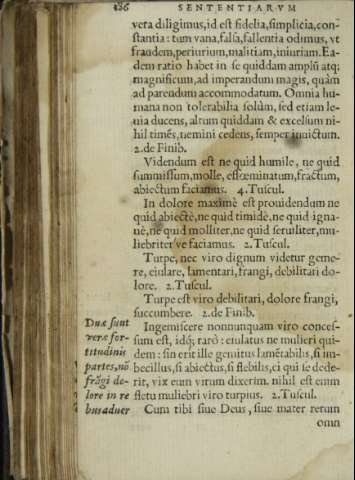 186 SENTENTIARVM
vera diligimus, id est fidelia, simplicia, con-
stantia: tum vana, falsa, fallentia odimus, vt
fraudem, periurium, malitiam, iniuriam. Ea-
dem ratio habet in se quiddam amplũ atq;
magnificum, ad imperandum magis, quàm
ad parendum accommodatum. Omnia hu-
mana non tolerabilia solùm, sed etiam le-
uia ducens, altum quiddam & excelsum ni-
hil timẽs, nemini cedens, semper inuictum.
2. de Finib.
Videndum est ne quid humile, ne quid
summissum, molle, effœminatum, fractum,
abiectum faciamus. 4. Tuscul.
In dolore maximè est prouidendum ne
quid abiectè, ne quid timidè, ne quid igna-
uè, ne quid molliter, ne quid seruiliter, mu-
liebriter ve faciamus. 2. Tuscul.
Turpe, nec viro dignum videtur geme-
re, eiulare, lamentari, frangi, debilitari do-
lore. 2. Tuscul.
Turpe est viro debilitari, dolore frangi,
succumbere. 2. de Finib.
Ingemiscere nonnunquam viro conces-
sum est, idq; rarò: eiulatus ne mulieri qui-
dem: sin erit ille gemitus lamẽtabilis, si im-
becillus, si abiectus, si flebilis, ei qui se dede-
rit, vix eum virum dixerim. nihil est enim
fletu muliebri viro turpius. 2. Tuscul.
Cum tibi siue Deus, siue mater rerum
omn
Duæ sunt
veræ for-
titudinis
partes, nõ
frãgi do-
lore in re
bus aduer